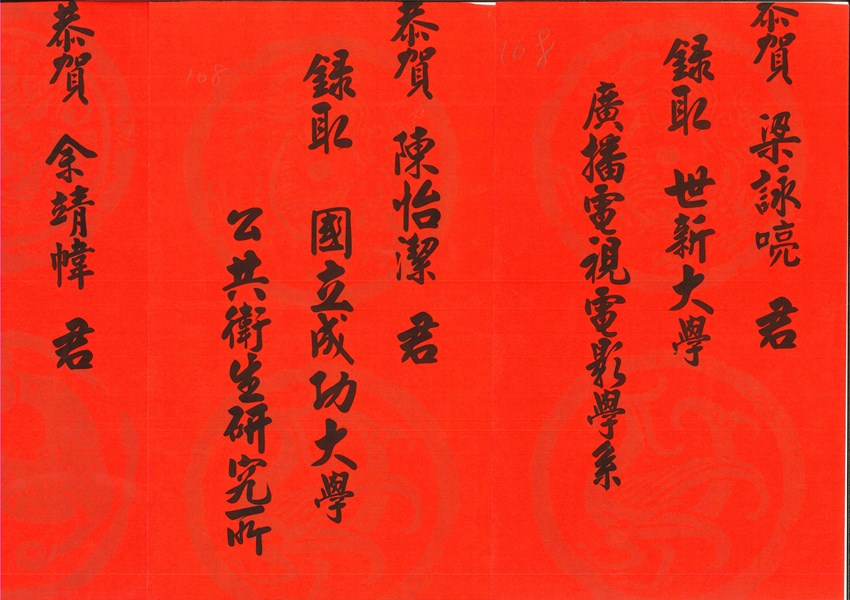 恭賀 梁詠喨 君
錄取 世新大學
廣播電視電影學系
108
恭賀 陳怡潔 君
錄取 國立成功大學
公共衛生研究所
108
恭賀 余靖幃 君